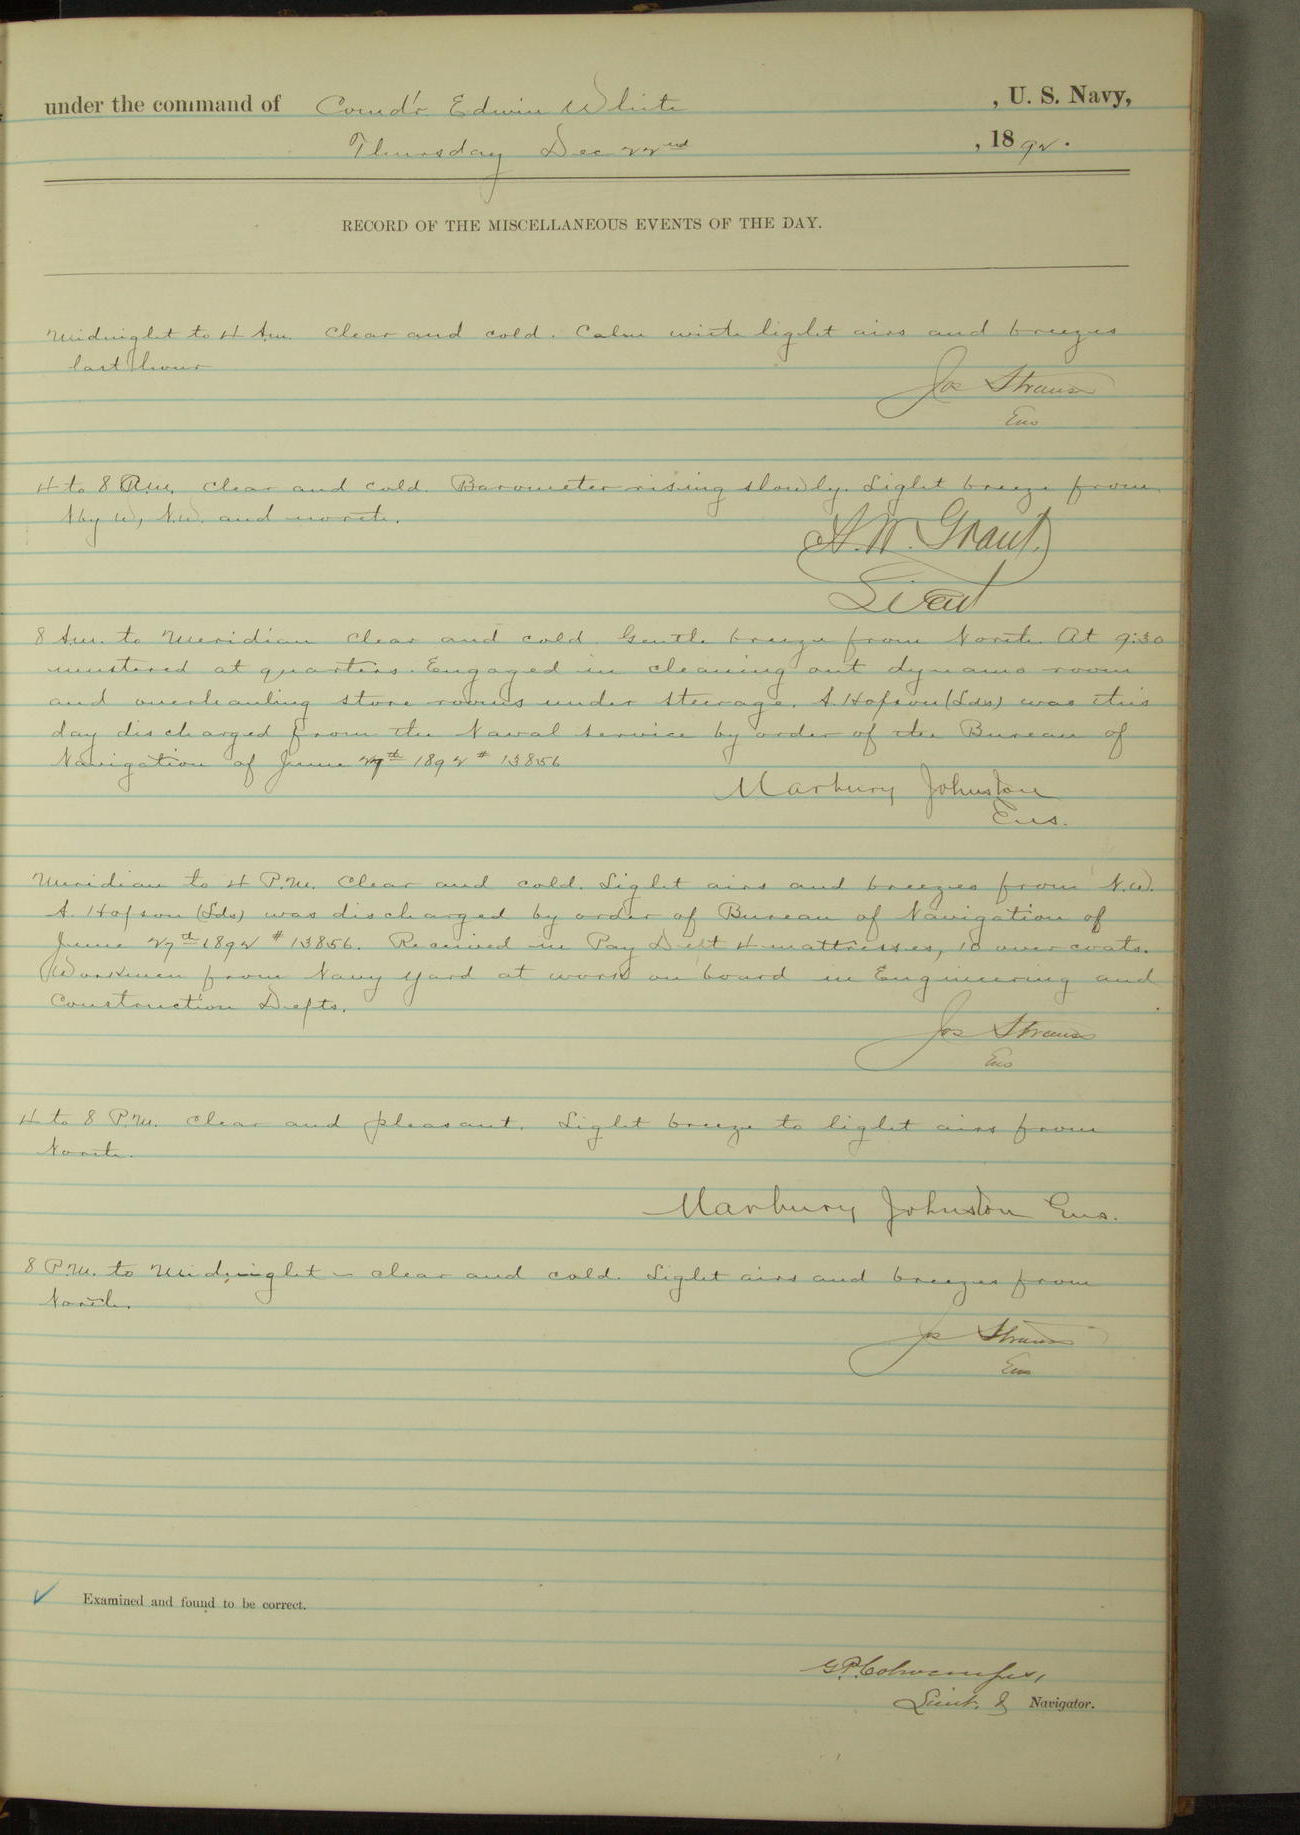 under the command of Comd'r Edwin White , U. S. Navy,
Thursday Dec 22nd , 1892.
RECORD OF THE MISCELLANEOUS EVENTS OF THE DAY.
Midnight to 4 A.m. Clear and cold. Calm with light airs and breezes
last hour
Jos Strauss
Ens
4 to 8 A.M. Clear and cold. Barometer rising slowly. Light breeze from
N by W, N.W. and north.
A. W. Grant.
Lieut
8 A.m. to Meridian Clear and cold. Gentle breeze from North. At 9:30
mustered at quarters. Engaged in cleaning out dynamo room
and overhauling store rooms under steerage. A. Hofson (Lds) was this
day discharged from the Naval service by order of the Bureau of
Navigation of June 27th 1892 # 13856
Marbury Johnston
Ens.
Meridian to 4 P.M. Clear and cold. Light airs and breezes from N.W.
A. Hofson (Lds) was discharged by order of Bureau of Navigation of
June 27th 1892 # 13856. Received in Pay Dept 4 mattresses, 10 overcoats.
Workmen from Navy Yard at work on board in Engineering and
Construction Depts.
Jos Strauss
Ens
4 to 8 P.M. Clear and pleasant. Light breeze to light airs from
North.
Marbury Johnston Ens.
8 P.M. to Midnight – clear and cold. Light airs and breezes from
North.
Jos Strauss
Ens
✓ Examined and found to be correct.
G.P. Colvocoresses,
Lieut. & Navigator.